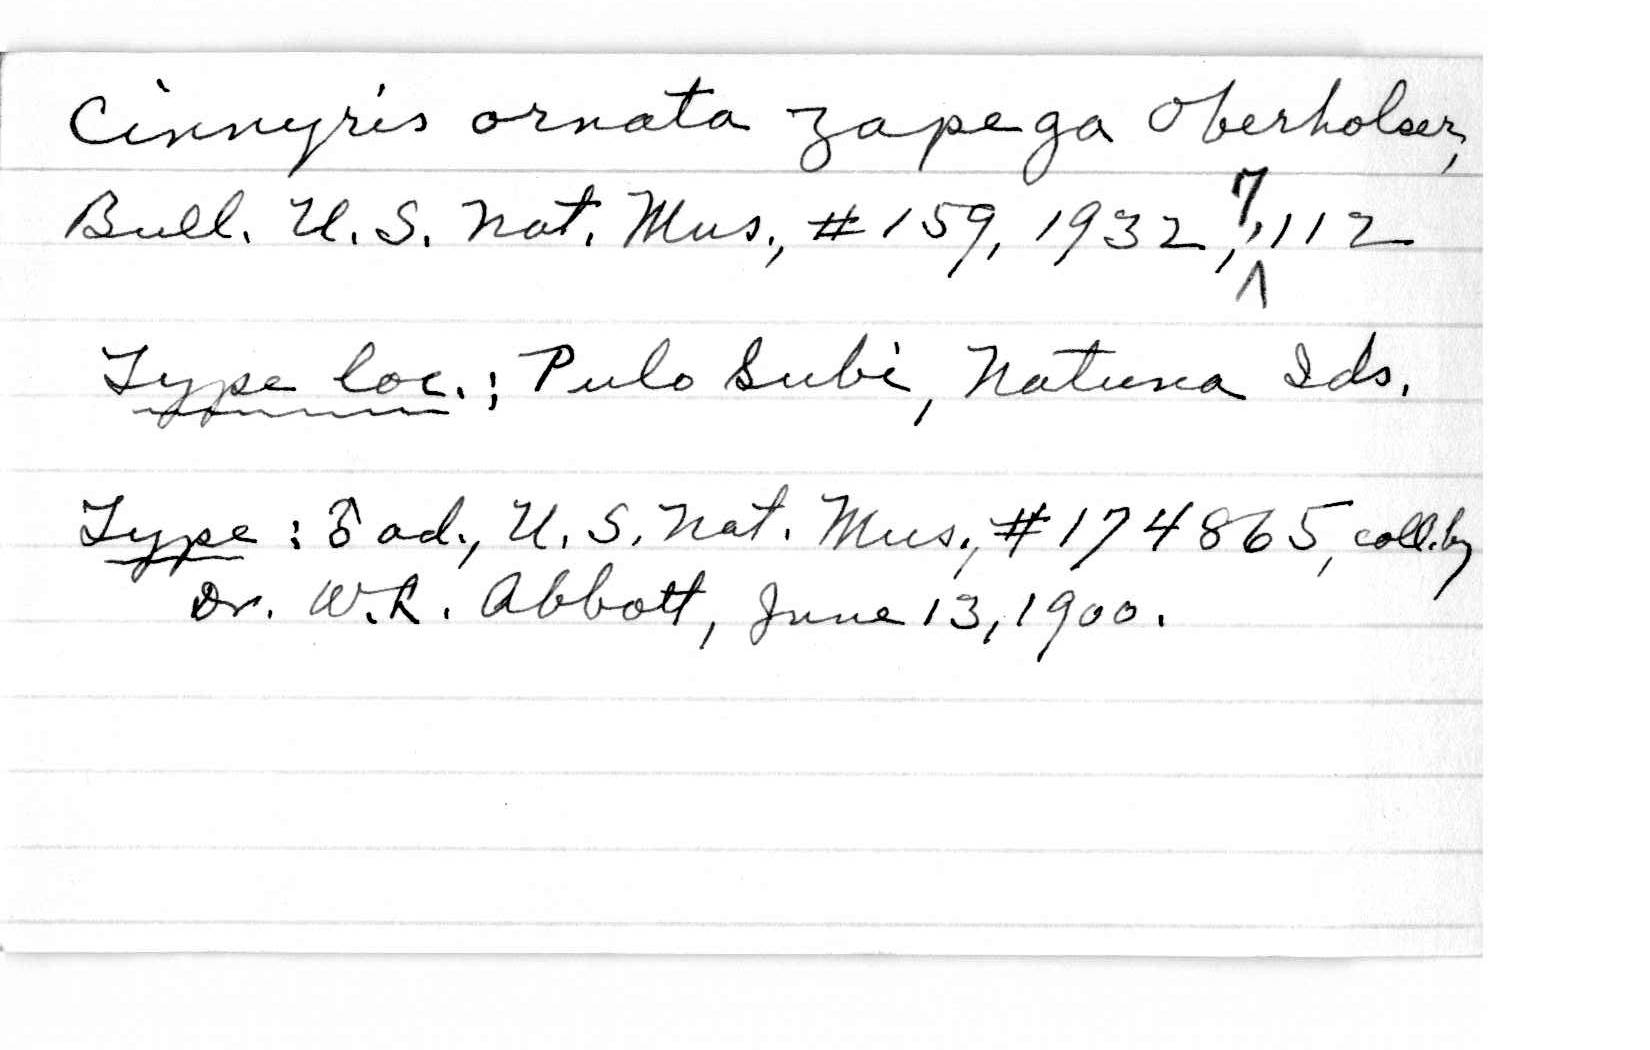 Cinnyris ornata zapega Oberholser,
Bull. U. S. Nat. Mus., #159, 1932, 7, 112
Type loc.; Pulo Subi, Natuna Ids.
Type : ♂ ad., U. S. Nat. Mus., #174865, coll. by
Dr. W. L. Abbott, June 13, 1900.